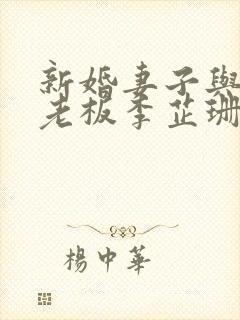 新婚妻子與
老板李芷珊
楊中華